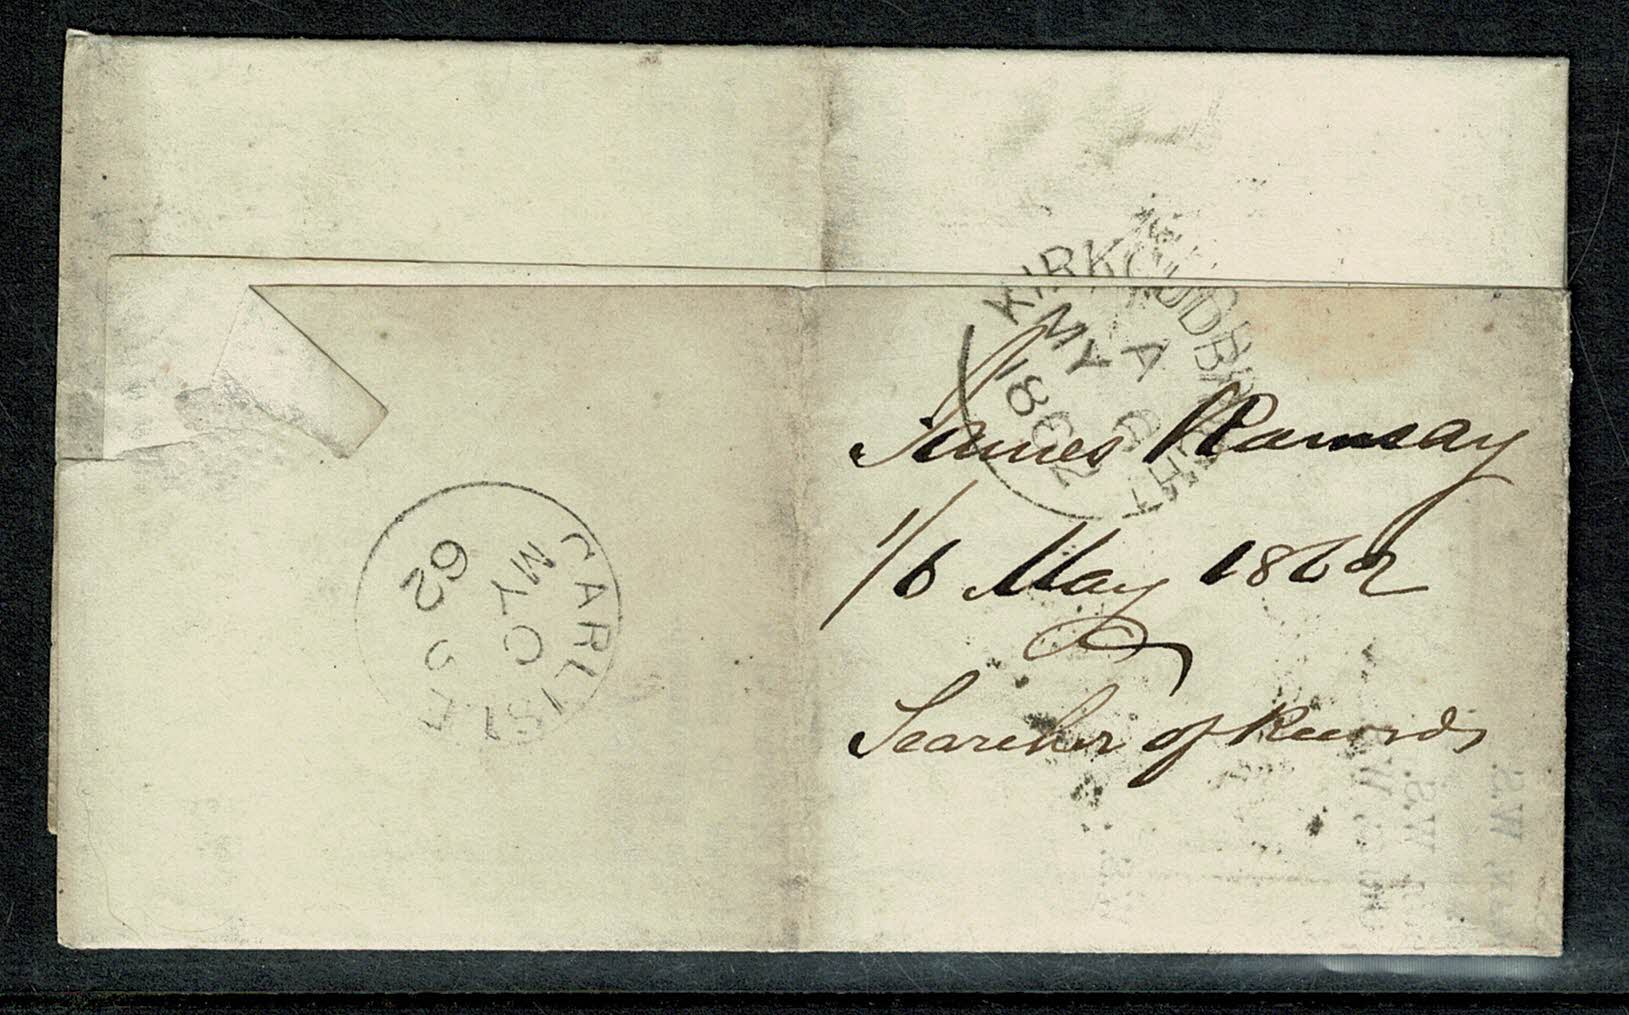 KIRKCUDBRIGHT
A
MY
1862
James Ramsay
1/6 May 1862
Searcher of Records
CARLISLE
MY
62
A
S.W.
S.W.